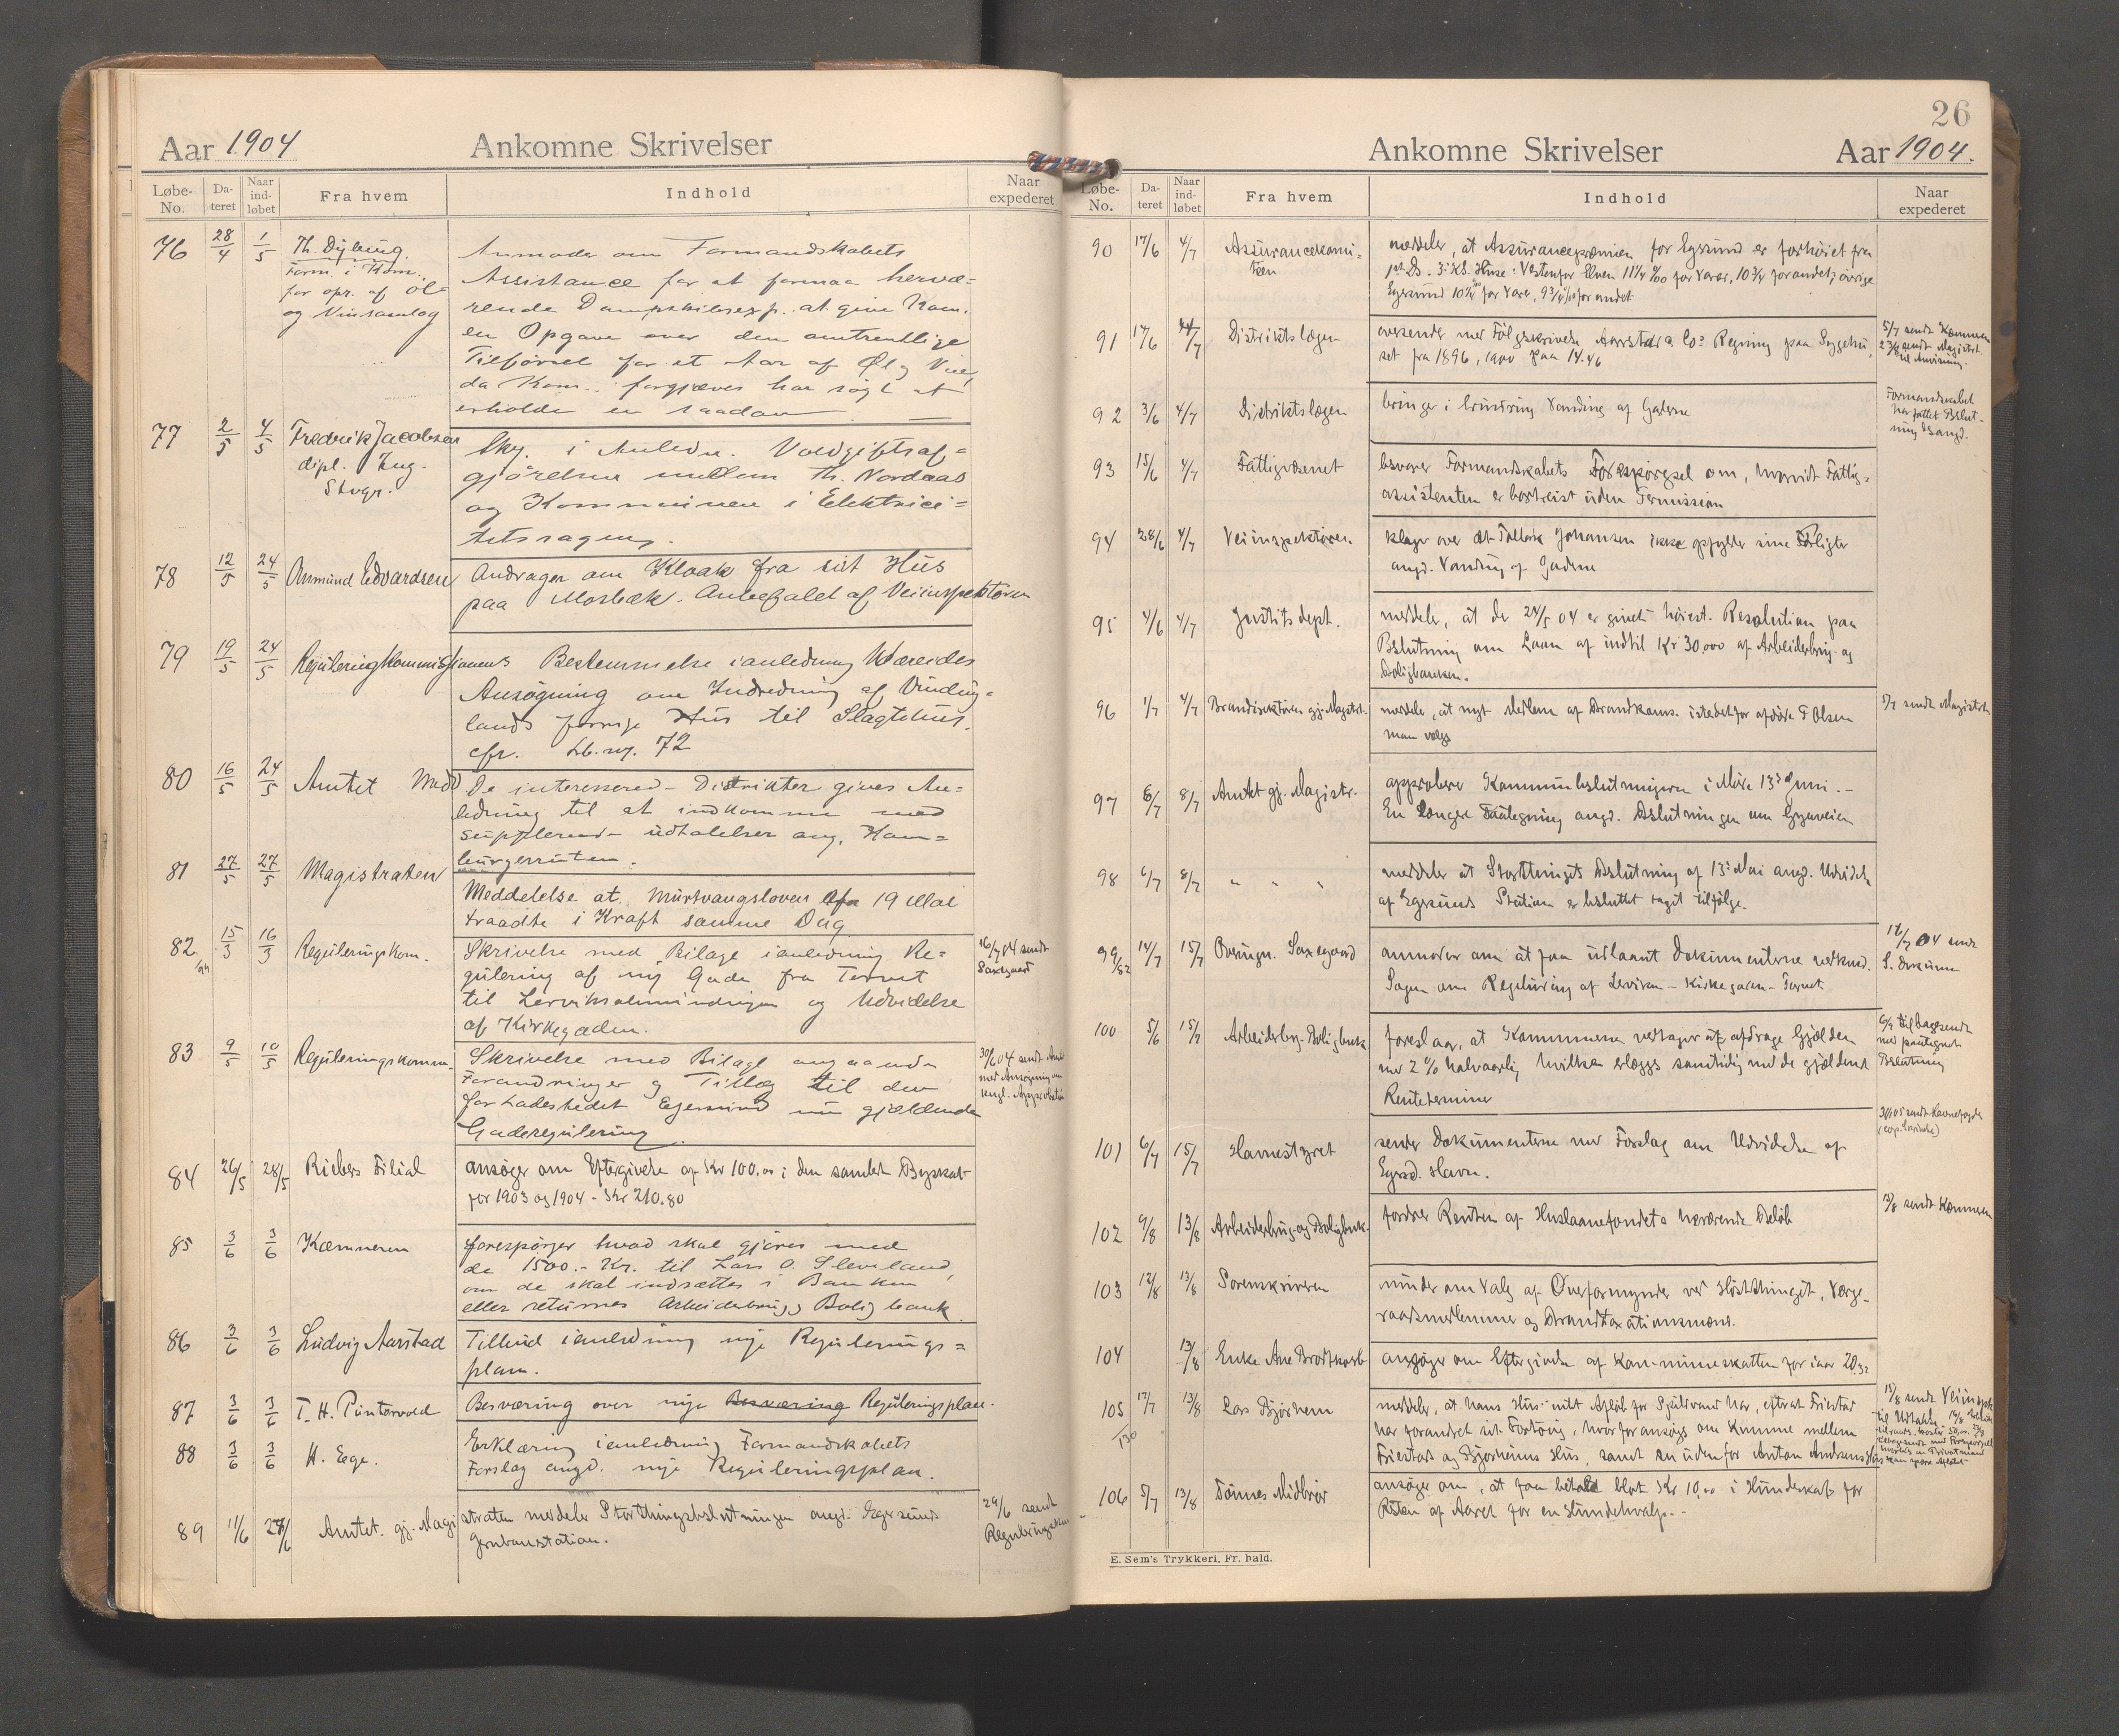 Aar 1904 Ankomne Skrivelser
Løbe-No. Da-teret Naar ind-løbet Fra hvem Indhold Naar expederet
76 28/4 1/5 Th. Dyb
Form. i Kom.
for opr. af Øl-
og Vinsamlag
Anmoder om Formandskabets
Assistance for at formaa hervæ-
rende Dampskibsexp. at give Kom.
en Opgave over den omtrentlige
Tilførsel for et Aar af Øl og Vin,
da Kom. forgjæves har søgt at
erholde en saadan
77 2/5 4/5 Fredrik Jacobsen
dipl. Ing.
Stvgr.
Skr. i Anledn. Voldgiftsaf-
gjørelsen mellem Th. Nordaas
og Kommunen i Elektrici-
tetssagen.
78 12/5 24/5 Anmund Edvardsen Andrager om Kloak fra sit Hus
paa Mosbæk. Anbefalet af Veiinspektøren
79 19/5 24/5 Reguleringskommissionens Bestemmelse i anledning
Ansøgning om Indredning af Vinding-
lands forrige Hus til Slagtehus.
cfr. Lb. no. 72
80 16/5 24/5 Amtet Medd De interessered- Distrikter gives An-
ledning til at indkomme med
supplerend- udtalelser ang. Ham-
burgerruten.
81 27/5 27/5 Magistraten
Meddelelse at Murtvangsloven fra 19 Mai
traadte i Kraft samme Dag
82 15/3 16/3 Reguleringskom. Skrivelse med Bilage i anledning Re-
gulering af ny Gade fra Torvet
til Lerviksalmindingen og Udvidelse
af Kirkegaden.
16/7 04 sendt
Saxegaard
83 9/5 10/5 Reguleringskomm. Skrivelse med Bilage angaaende
Forandringer og Tillæg til den
for Ladestedet Egersund nu gjældende
Gaderegulering.
30/6 04 sendt Amt
med Ansøgning om
kngl. Approbation
84 26/5 28/5 Riebers Filial ansøger om Eftergivelse af Kr 100.00 i den samlede Byskat
for 1903 og 1904 - Kr 210.80
85 3/6 3/6 Kæmneren forespørger hvad skal gjøres med
de 1500.- Kr. til Lars O. Sleveland,
om de skal indsættes i Banken
eller returnes Arbeiderbrug og Bolig bank.
86 3/6 3/6 Ludvig Aarstad Tilbud i anledning nye Regulerings-
plan.
87 3/6 3/6 T. H. Puntervold Besværing over nye Besværing Reguleringsplan.
88 3/6 3/6 H. Ege. Erklæring i anledning Formandskabets
Forslag angd. nye Reguleringsplan.
89 11/6 24/6 Amtet. gj. Magistraten meddeler Storthingsbeslutningen angd. Egersunds
Jernbanestation.
29/6 sendt
Reguleringskom
26
Ankomne Skrivelser Aar 1904.
Løbe-No. Da-teret Naar ind-løbet Fra hvem Indhold Naar expederet
90 17/6 4/7 Assurancekomi-
teen
meddeler, at Assurancepræmien for Egersund er forhøiet fra
3. Kl. Huse: Vestenfor Elven 11¼ ‰ for Varer, 10¾ for andet, øvrige
Egersund 10¼ for Varer, 9¾ ‰ for andet
91 17/6 4/7 Distriktslægen oversender med Følgeskrivelse Aarstad & Co's Regning paa Sygehu-
set fra 1896, 1900 paa 14.46
5/7 sendt Kæmneren
sendt Magistrat.
til Anvisning
92 3/6 4/7 Distriktslægen bringer i Erindring Vanding af Gaderne
Formandskabet
har fattet Beslut-
ning desangd.
93 15/6 4/7 Fattigvæsenet besvarer Formandskabets Forespørgsel om, hvorvidt Fattig-
assistenten er bortreist uden Permission
94 28/6 4/7 Veiinspektøren klager over at Johansen ikke opfylder sine Forpligter
angd. Vanding af Gaderne
95 4/6 4/7 Justitsdept. meddeler, at der 24/5 04 er givet høiest. Resolution paa
Beslutning om Laan af indtil Kr 30,000 af Arbeiderbrug- og
Boligbanken.
96 1/7 4/7 Branddirektøren gj. Magistrat. meddeler, at nyt Medlem af Brandkoms. istedetfor afdøde T Olsen
man vælge
5/7 sendt Magistrat
97 6/7 8/7 Amtet gj. Magistr. approberer Kommunebeslutningerne i Møde 13de Juni. -
En længere Paategning angd. Beslutningen om Gyaveien
98 6/7 8/7 " " " meddeler at Storthingets Beslutning af 13de Mai angd. Udvidelse
af Egersunds Station er besluttet taget tilfølge.
99/82 14/7 15/7 Overingn. Saxegaard anmoder om at faa udlaant Dokumenterne vedkmd.
Sagen om Regulering af Lerviken - Kirkegaden - Torvet
04 sendt
S. Dokumen
100 5/6 15/7 Arbeiderbr. Boligbank foreslaar, at Kommunen vedtager at afdrage Gjælden
med 2 % halvaarlig hvilke erlægges samtidig med de gjældende
Renteterminer
tilbagesendt
med paategnet
Beslutning
101 6/7 15/7 Havnestyret sender Dokumenterne med Forslag om Udvidelse af
Egersd. Havn.
05 sendt Havnefogden
102 9/8 13/8 Arbeiderbrug og Boligbank fordrer Renten af Huslaanefondets herværende Beløb
13/8 sendt Kæmneren
103 12/8 13/8 Sorenskriveren minder om Valg af Overformynder ved Høstthinget, Værge-
raadsmedlemmer og Brandtaxationsmænd.
104 13/8 Enke Ane Brodtkorb ansøger om Eftergivelse af Kommuneskatten for iaar 20.32
105/130 17/7 13/8 Lars Bjørheim meddeler, at hans Hus intet Afløb for Spildevand har, efterat Friestad
har forandret sit Fortoug, hvorfor ansøges om Kumme mellem
Friestads og Bjørheims Hus, samt en udenfor Anton Andersens Hus
15/8 sendt Veiinspek
til Udtalelse
106 5/7 13/8 Tønnes Midbrød ansøger om, at faa betale blot Kr 10.00 i Hundeskat for
Resten af Aaret for en Hundehvalp. -
E. Sem's Trykkeri, Fr. hald.